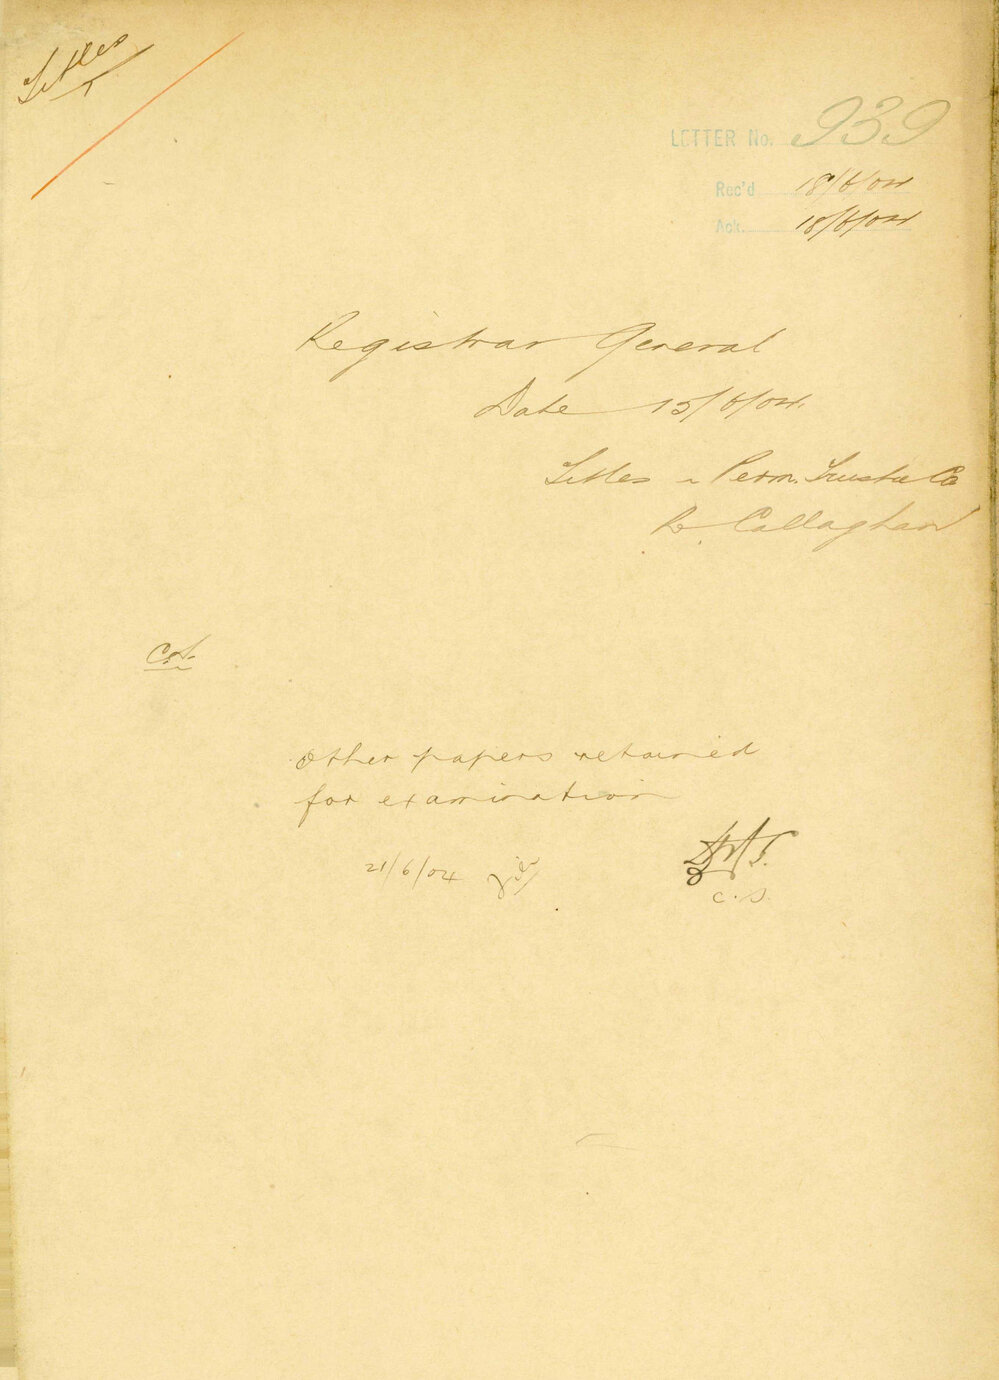 Titles
LETTER No. 939
Rec'd 18/6/04
Ack. 18/6/04
Registrar General
Date 15/6/04.
Titles - Perm. Trustee Co
Re Callaghan
Other papers retained
for examination
21/6/04
C.S.